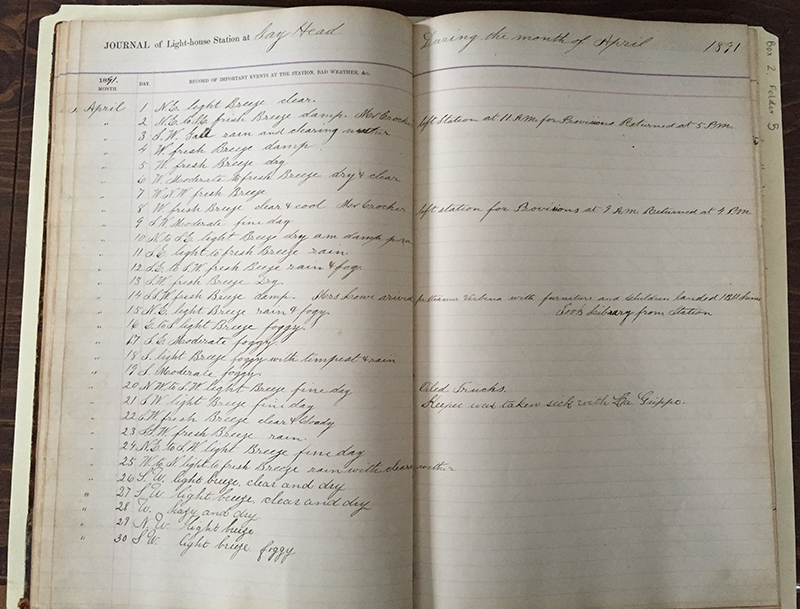 JOURNAL of Light-house Station at Gay Head During the month of April 1891
Box 2. Folder B
1891.
MONTH. DAY. RECORD OF IMPORTANT EVENTS AT THE STATION, BAD WEATHER, &c.
April 1 N.E. light Breeze clear.
" 2 N.E. to S.E. fresh Breeze damp. Mrs Crocker left Station at 11 A.M. for Provisions Returned at 5 P.M.
" 3 S.W. Gall rain and clearing weather
" 4 W fresh Breeze damp
" 5 W. fresh Breeze dry
" 6 W. Moderate to fresh Breeze dry & clear
" 7 W N.W. fresh Breeze
" 8 W fresh Breeze clear & cool Mrs Crocker left station for Provisions at 9 A.M. Returned at 9 P.M.
" 9 S.W. Moderate fine day
" 10 N to S.E. light Breeze dry am damp p.m
" 11 S.E. light to fresh Breeze rain.
" 12 S.E. to S.W. fresh Breeze rain & fog.
" 13 S.W. fresh Breeze Dry.
" 14 S.W. fresh Breeze damp. Mrs Lowe arived pr Steamer Verbina with furniture and Children landed
" 15 N.E. light Breeze rain & fogy. Library from Station
" 16 E. to S. light Breeze foggy.
" 17 S.E. Moderate foggy.
" 18 S. light Breeze foggy with tempest & rain
" 19 S. Moderate foggy.
" 20 N.W. to S.W. light Breeze fine day Oiled Trucks.
" 21 S.W. light Breeze fine day Keeper was taken sick with La Grippe.
" 22 S.W. fresh Breeze clear & Cloudy
" 23 S.W. fresh Breeze rain.
" 24 N.E. to S.W. light Breeze fine day
" 25 W. to N light to fresh Breeze rain with clear weth-
" 26 S.W. light breeze, clear and dry
" 27 S.W. light breeze, clear and dry
" 28 W. hazy and dry
" 29 N.W. light breeze
" 30 S.W. light breeze foggy